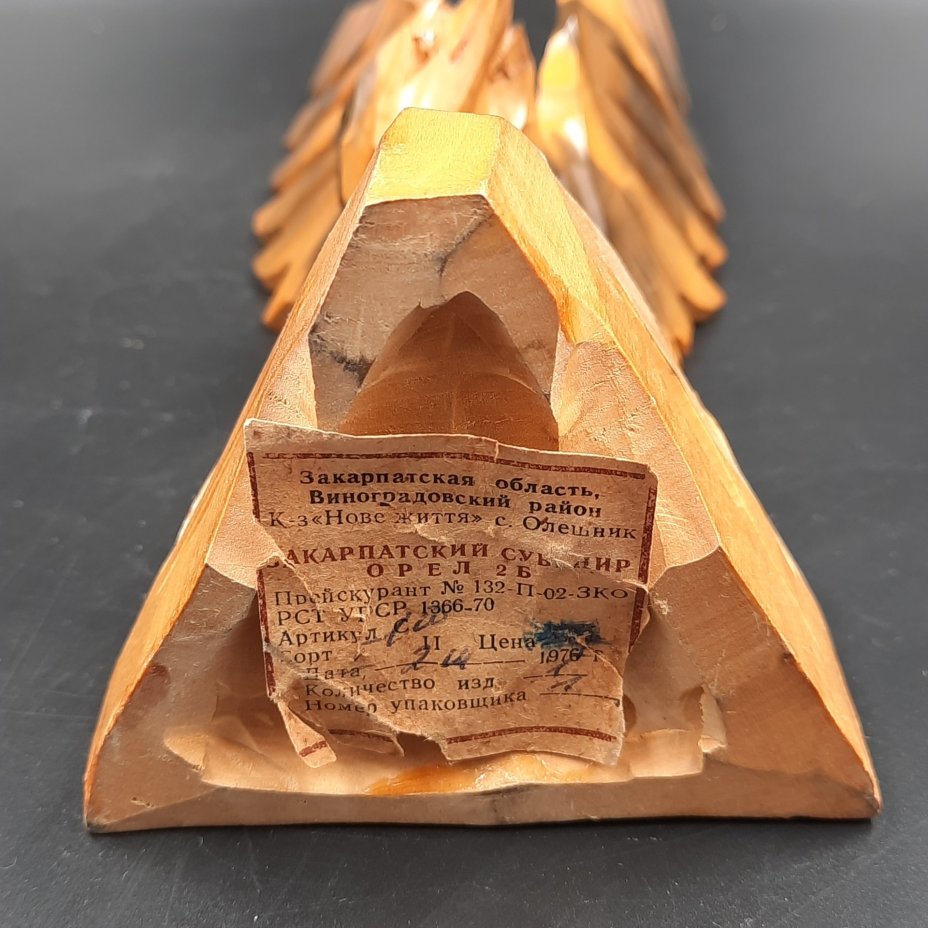 Закарпатская область,
Виноградовский район
К-з «Нове життя» с. Олешник
ЗАКАРПАТСКИЙ СУВЕНИР
ОРЕЛ 2Б
Прейскурант № 132-П-02-ЗКО
РСТ УРСР 1366-70
Артикул II Цена
Сорт 1976 г
Дата,
Количество изд
Номер упаковщика